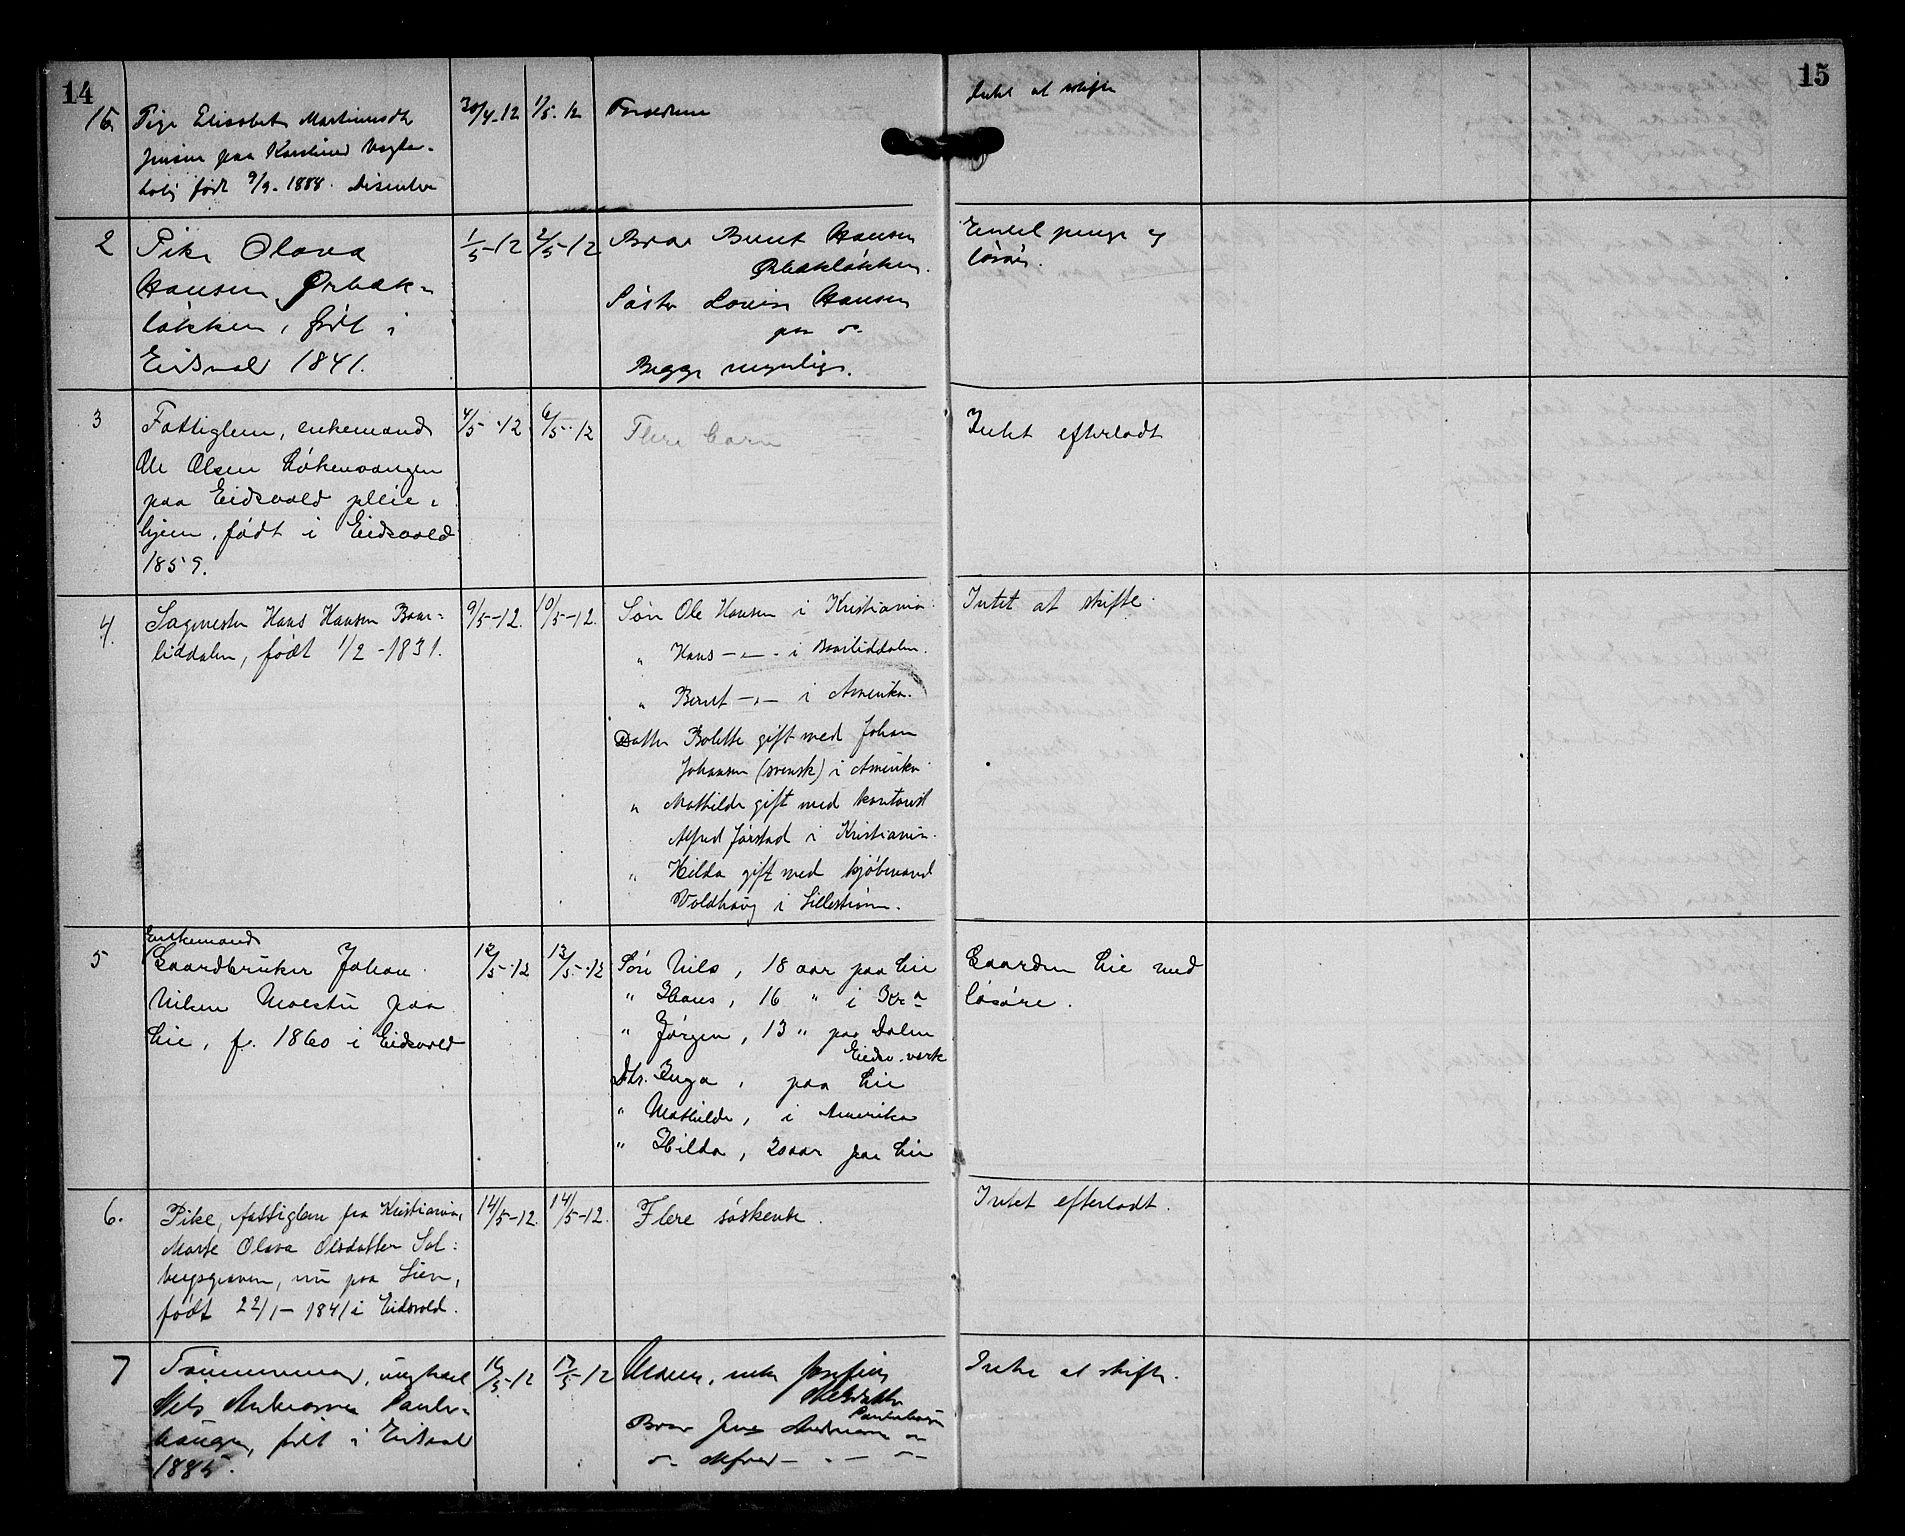 14
15
15 Pige Elisabet Martinusdtr 30/4-12 1/5-12 Forældrene Intet at skifte
Jensen paa Karstuen
født 9/9-1888. Disenter
2 Pike Olava 1/5-12 2/5-12 Bror Bernt Hansen Enkel penge og
Hansen, Ørbæk- Ørbækløkken. løsøre.
løkken, født i Søster Lovise Hansen
Eidsvold 1841. paa do
Begge myndige.
3 Fattiglem, enkemand 4/5-12 6/5-12 Flere barn Intet efterladt
Ole Olsen Løkenvangen
paa Eidsvold pleie-
hjem, født i Eidsvold
1859.
4. Sagmester Hans Hansen Baar- 9/5-12. 10/5-12. Søn Ole Hansen i Kristiania. Intet at skifte.
liddalen, født 1/2-1831. " Hans —"— i Baarliddalen.
" Bernt —"— i Amerika.
Datter Bolette gift med Johan
Johansen (svensk) i Amerika.
" Mathilde gift med kontorist
Alfred Jørstad i Kristiania.
" Hilda gift med kjøbmand
Voldhaug i Lillestrøm.
5 Enkemand
Gaardbruker Johan 12/5-12 13/5-12 Søn Nils, 18 aar paa Lie Gaarden Lie med
Nilsen Moestu paa " Hans, 16 " i Kra løsøre.
Lie, f. 1860 i Eidsvold " Jørgen, 13 " paa Dalen
Eidsv. verk
Dtr. Inga, paa Lie
" Mathilde, i Amerika
" Hilda, 20 aar paa Lie
6. Pike, fattiglem fra Kristiania, 14/5-12. 14/5-12. Flere søskende. Intet efterladt.
Marte Olava Olsdatter Sol-
bergsgraven, nu paa Lien,
født 22/1-1841 i Eidsvold.
7 Tømmermand, ungkarl 16/5-12 17/5-12 Moren, enke Josefine Intet at skifte.
Nils Andreasen Pauls- Nilsdatter
haugen, født i Eidsvold Paulshaugen
1885. Bror Jens Andreasen do
do Alfred — " — do